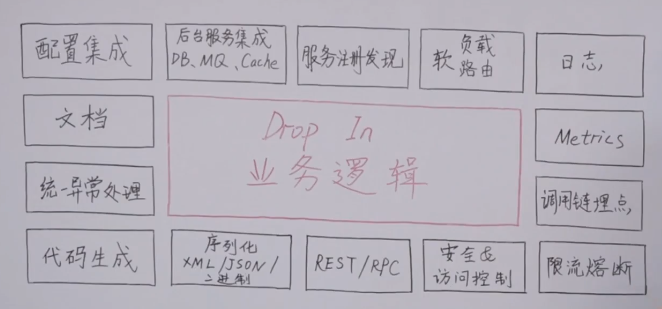 配置集成
后台服务集成
DB、MQ、Cache
服务注册发现
软负载
路由
日志
文档
Drop In
业务逻辑
Metrics
统一异常处理
调用链埋点
代码生成
序列化
XML/JSON/
二进制
REST/RPC
安全&
访问控制
限流熔断